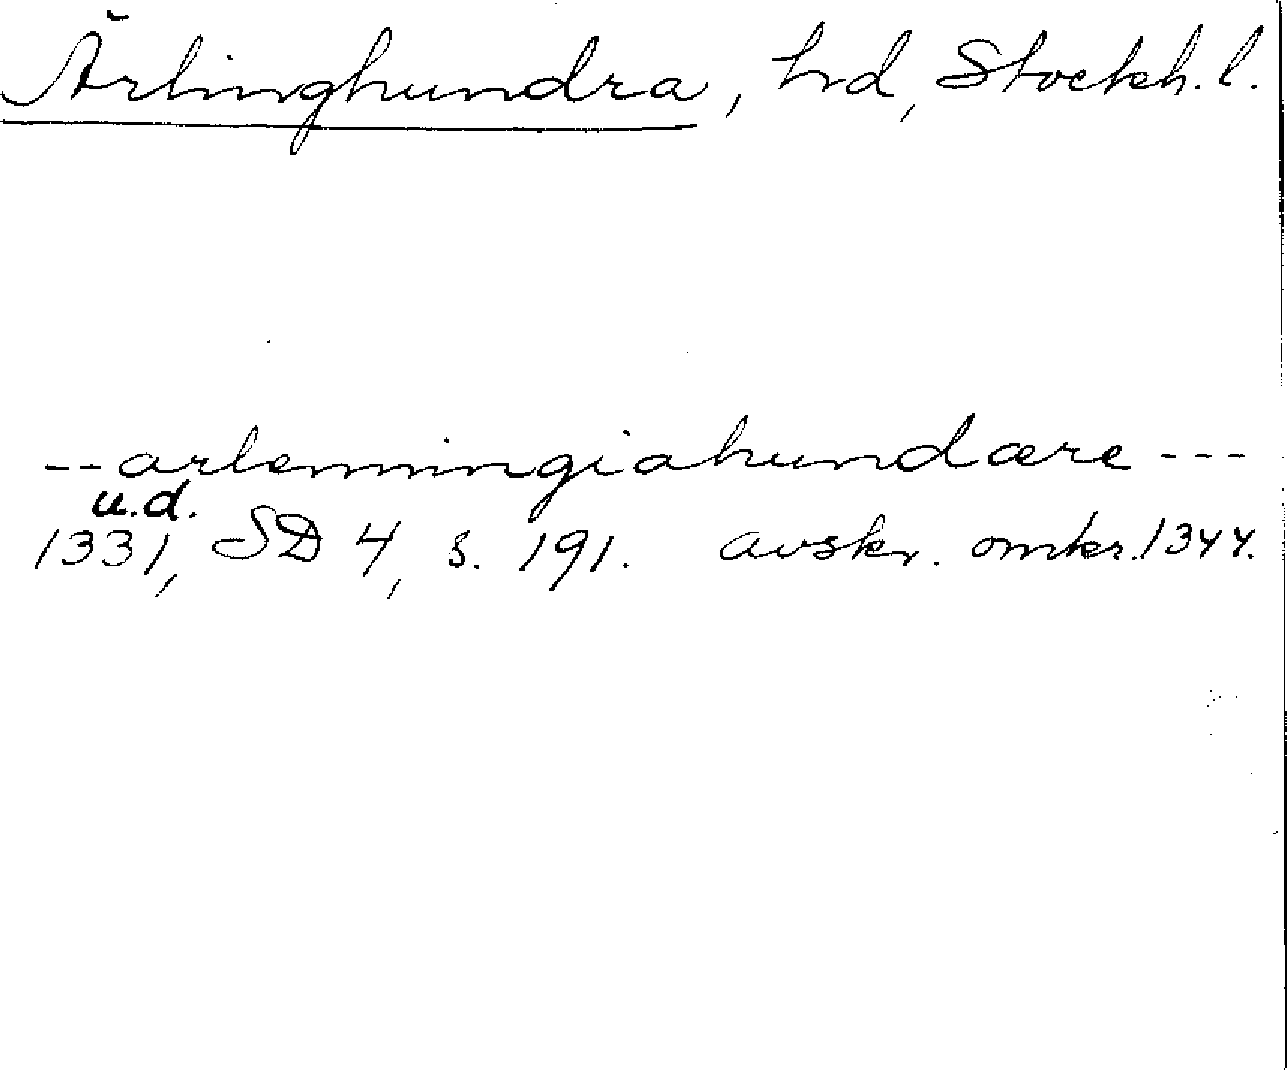 Ärlinghundra, hd, Stockh. l.
-- arlenningiahundære ---
u.d.
1331, SD 4, s. 191. avskr. omkr. 1344.